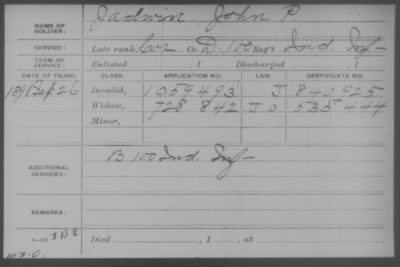 NAME OF SOLDIER: Jadwin John P
SERVICE: Late rank, Cor Co. D. 100 Reg't Ind Inf-
TERM OF SERVICE: Enlisted , 1 Discharged , 1
DATE OF FILING. CLASS. APPLICATION NO. LAW CERTIFICATE NO.
1891 Sep 26 Invalid, 1059493 J 840.925
Widow, 728 842 J O 535 444
Minor,
ADDITIONAL SERVICES: B 100 Ind. Inf-
REMARKS:
Died , 1 , at